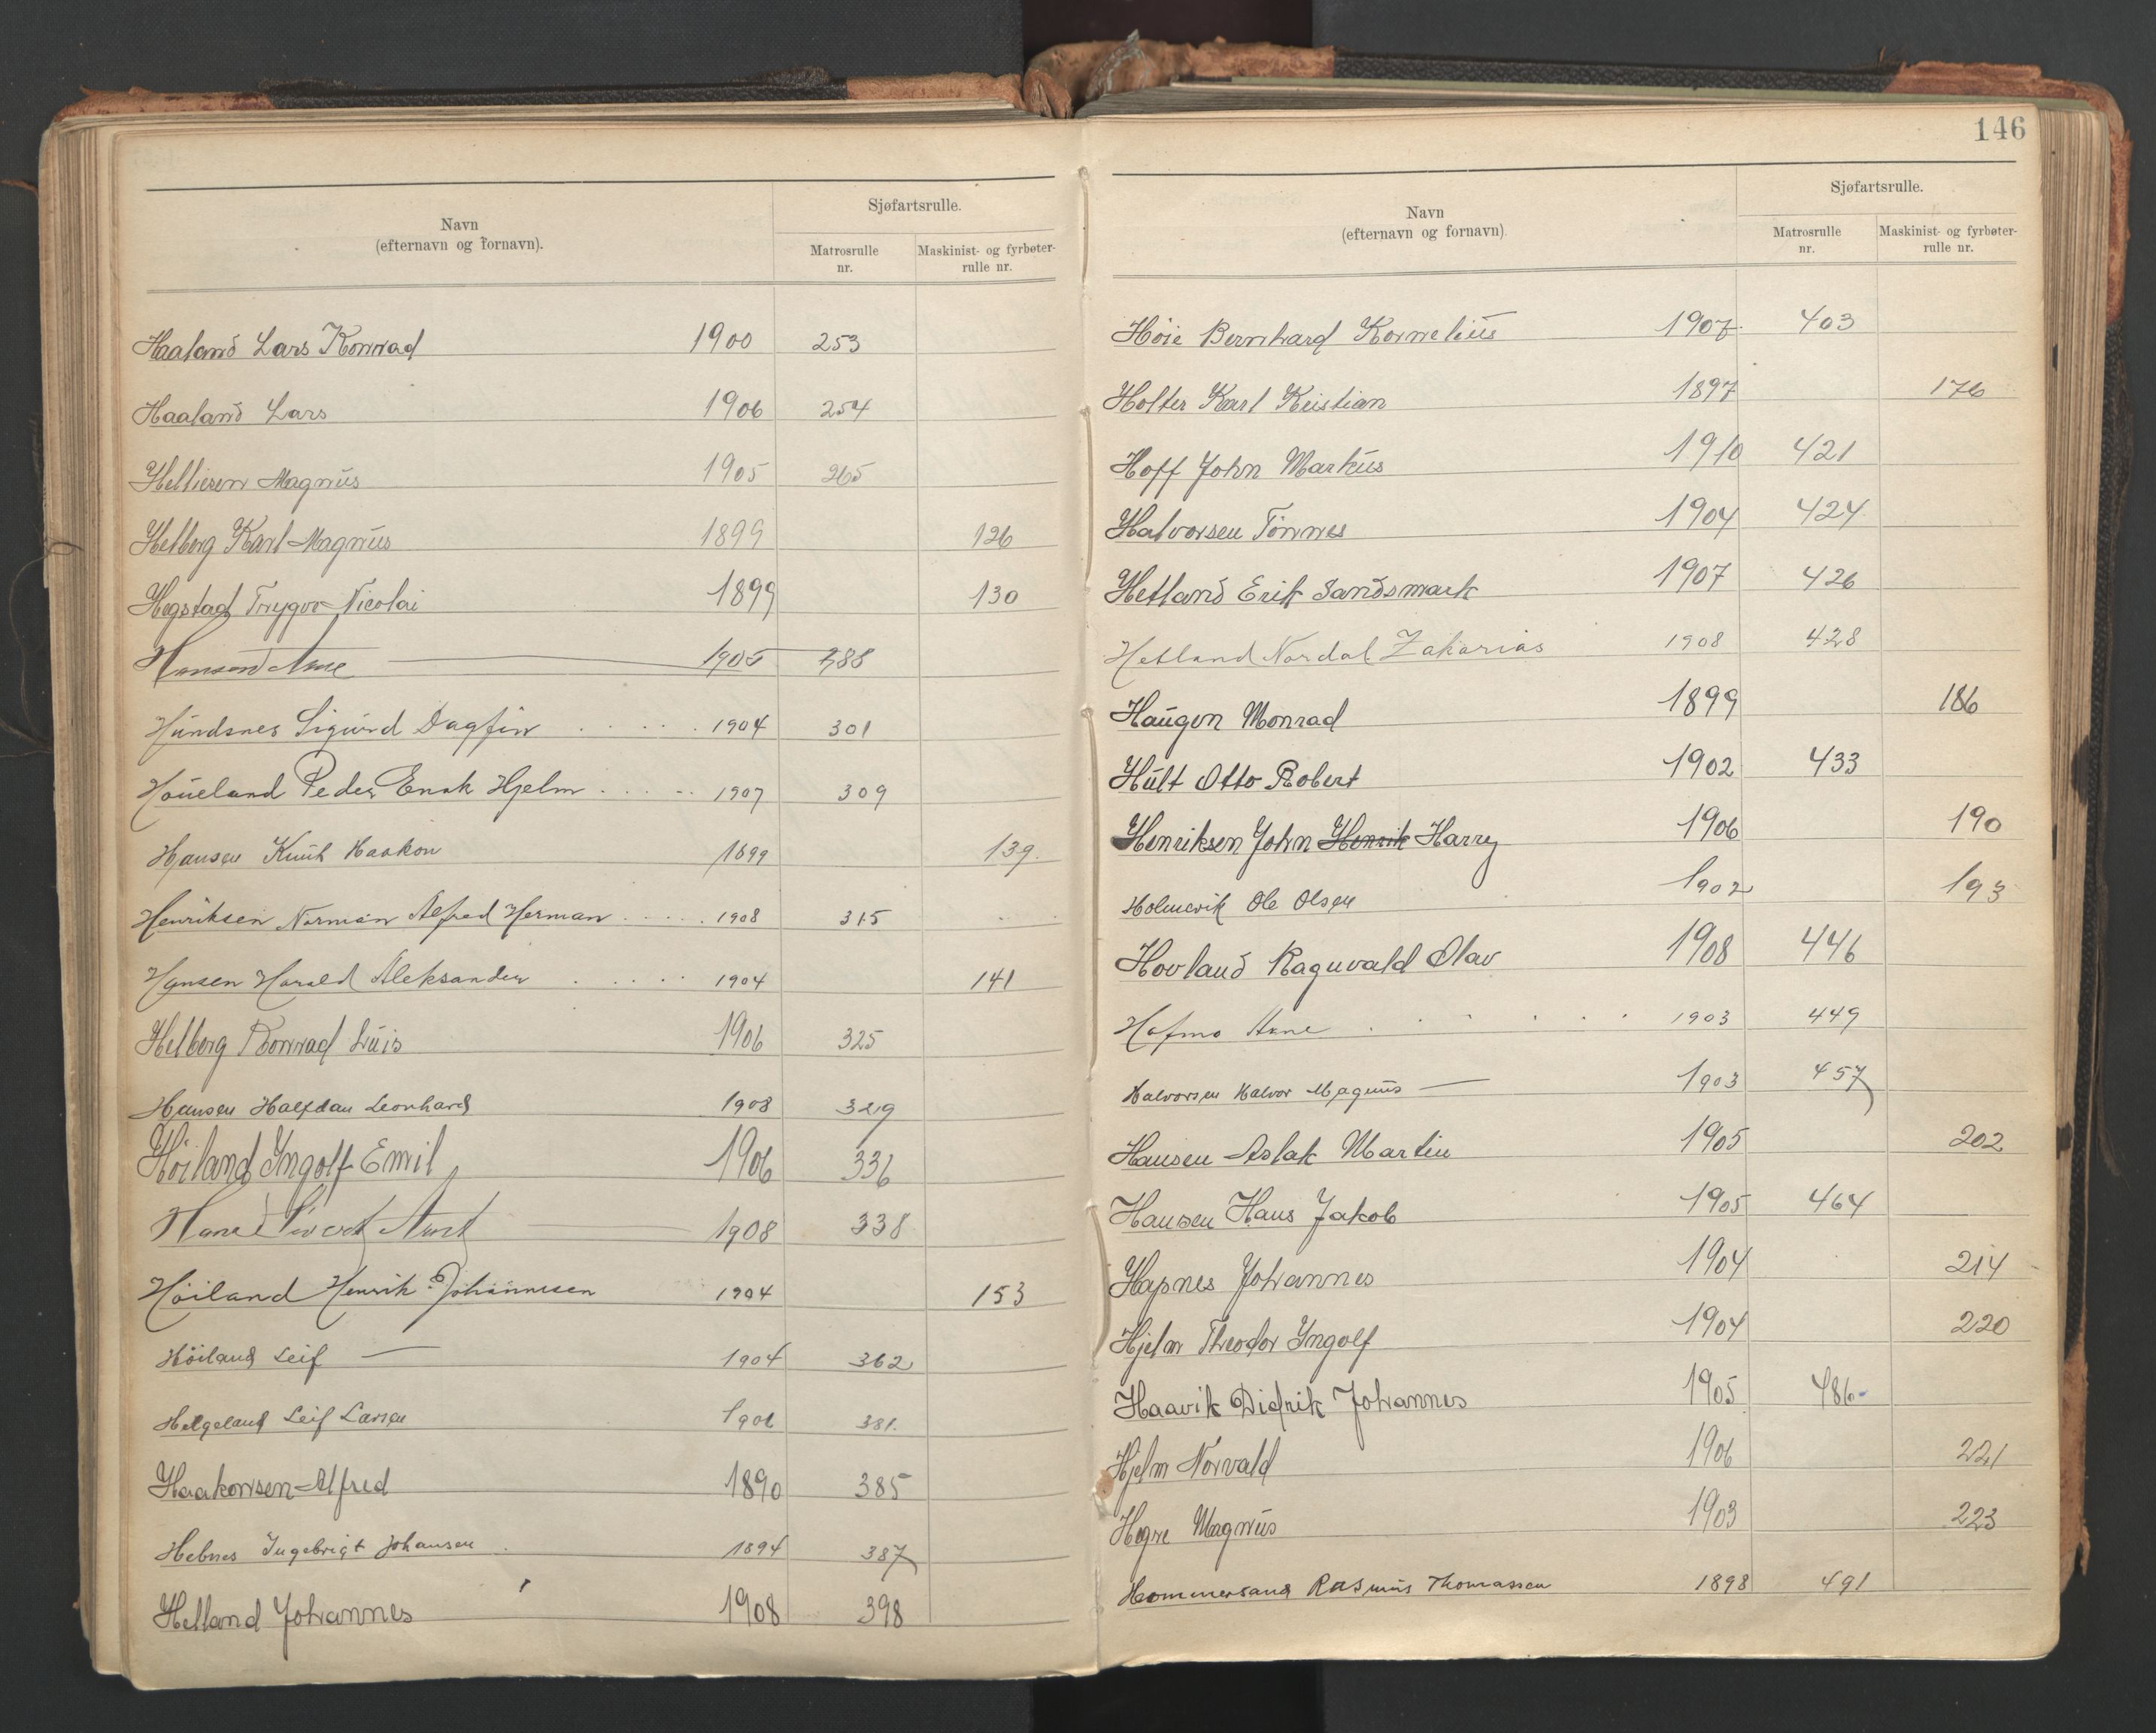 Navn
(efternavn og fornavn).
Sjøfartsrulle.
Matrosrulle
nr.
Maskinist- og fyrbøter-
rulle nr.
Haaland Lars Konrad 1900 253
Haaland Lars 1906 254
Helliesen Magnus 1905 265
Helborg Karl Magnus 1899 126
Hegstad Trygve Nicolai 1899 130
Hansen Arne 1905 288
Hundsnes Sigurd Dagfin 1904 301
Houeland Peder Enok Hjelm 1907 309
Hansen Knut Haakon 1899 139.
Henriksen Norman Alfred Herman 1908 315
Hansen Harald Aleksander 1904 141
Helborg Konrad Luis 1906 325
Hansen Halfdan Leonhard 1908 329
Höiland Yngolf Emil 1906 336
Hane Sivert 1908 338
Höiland Henrik Johannesen 1904 153
Höiland Leif 1904 362
Helgeland Leif Larsen 1906 381.
Haakonsen Alfred 1890 385
Hebnes Ingebrigt Johansen 1894 387
Helland Johannes 1908 398
146
Navn
(efternavn og fornavn)
Sjøfartsrulle.
Matrosrulle
nr.
Maskinist- og fyrbøter-
rulle nr.
Höie Bernhard Kornelius 1907 403
Holter Karl Kristian 1897 176
Hoff John Markus 1910 421
Halvorsen Tönnes 1904 424
Hetland Erik Sandsmark 1907 426
Hetland Nordal Zakarias 1908 428
Haugen Monrad 1899 186
Hult Otto Robert 1902 433
Henriksen John Henrik Harry 1906 190
Holmevik Ole Olsen 1902 193
Hovland Ragnvald Olav 1908 446
Hofmo Arne 1903 449
Halvorsen Halvor Magnus 1903 457
Hansen Aslak Martin 1905 202
Hansen Hans Jakob 1905 464
Hapnes Johannes 1904 214
Hjelm Theodor Yngolf 1904 220
Haavik Didrik Johannes 1905 486
Hjelm Norvald 1906 221
Hegre Magnus 1903 223
Hommersand Rasmus Thomassen 1898 491